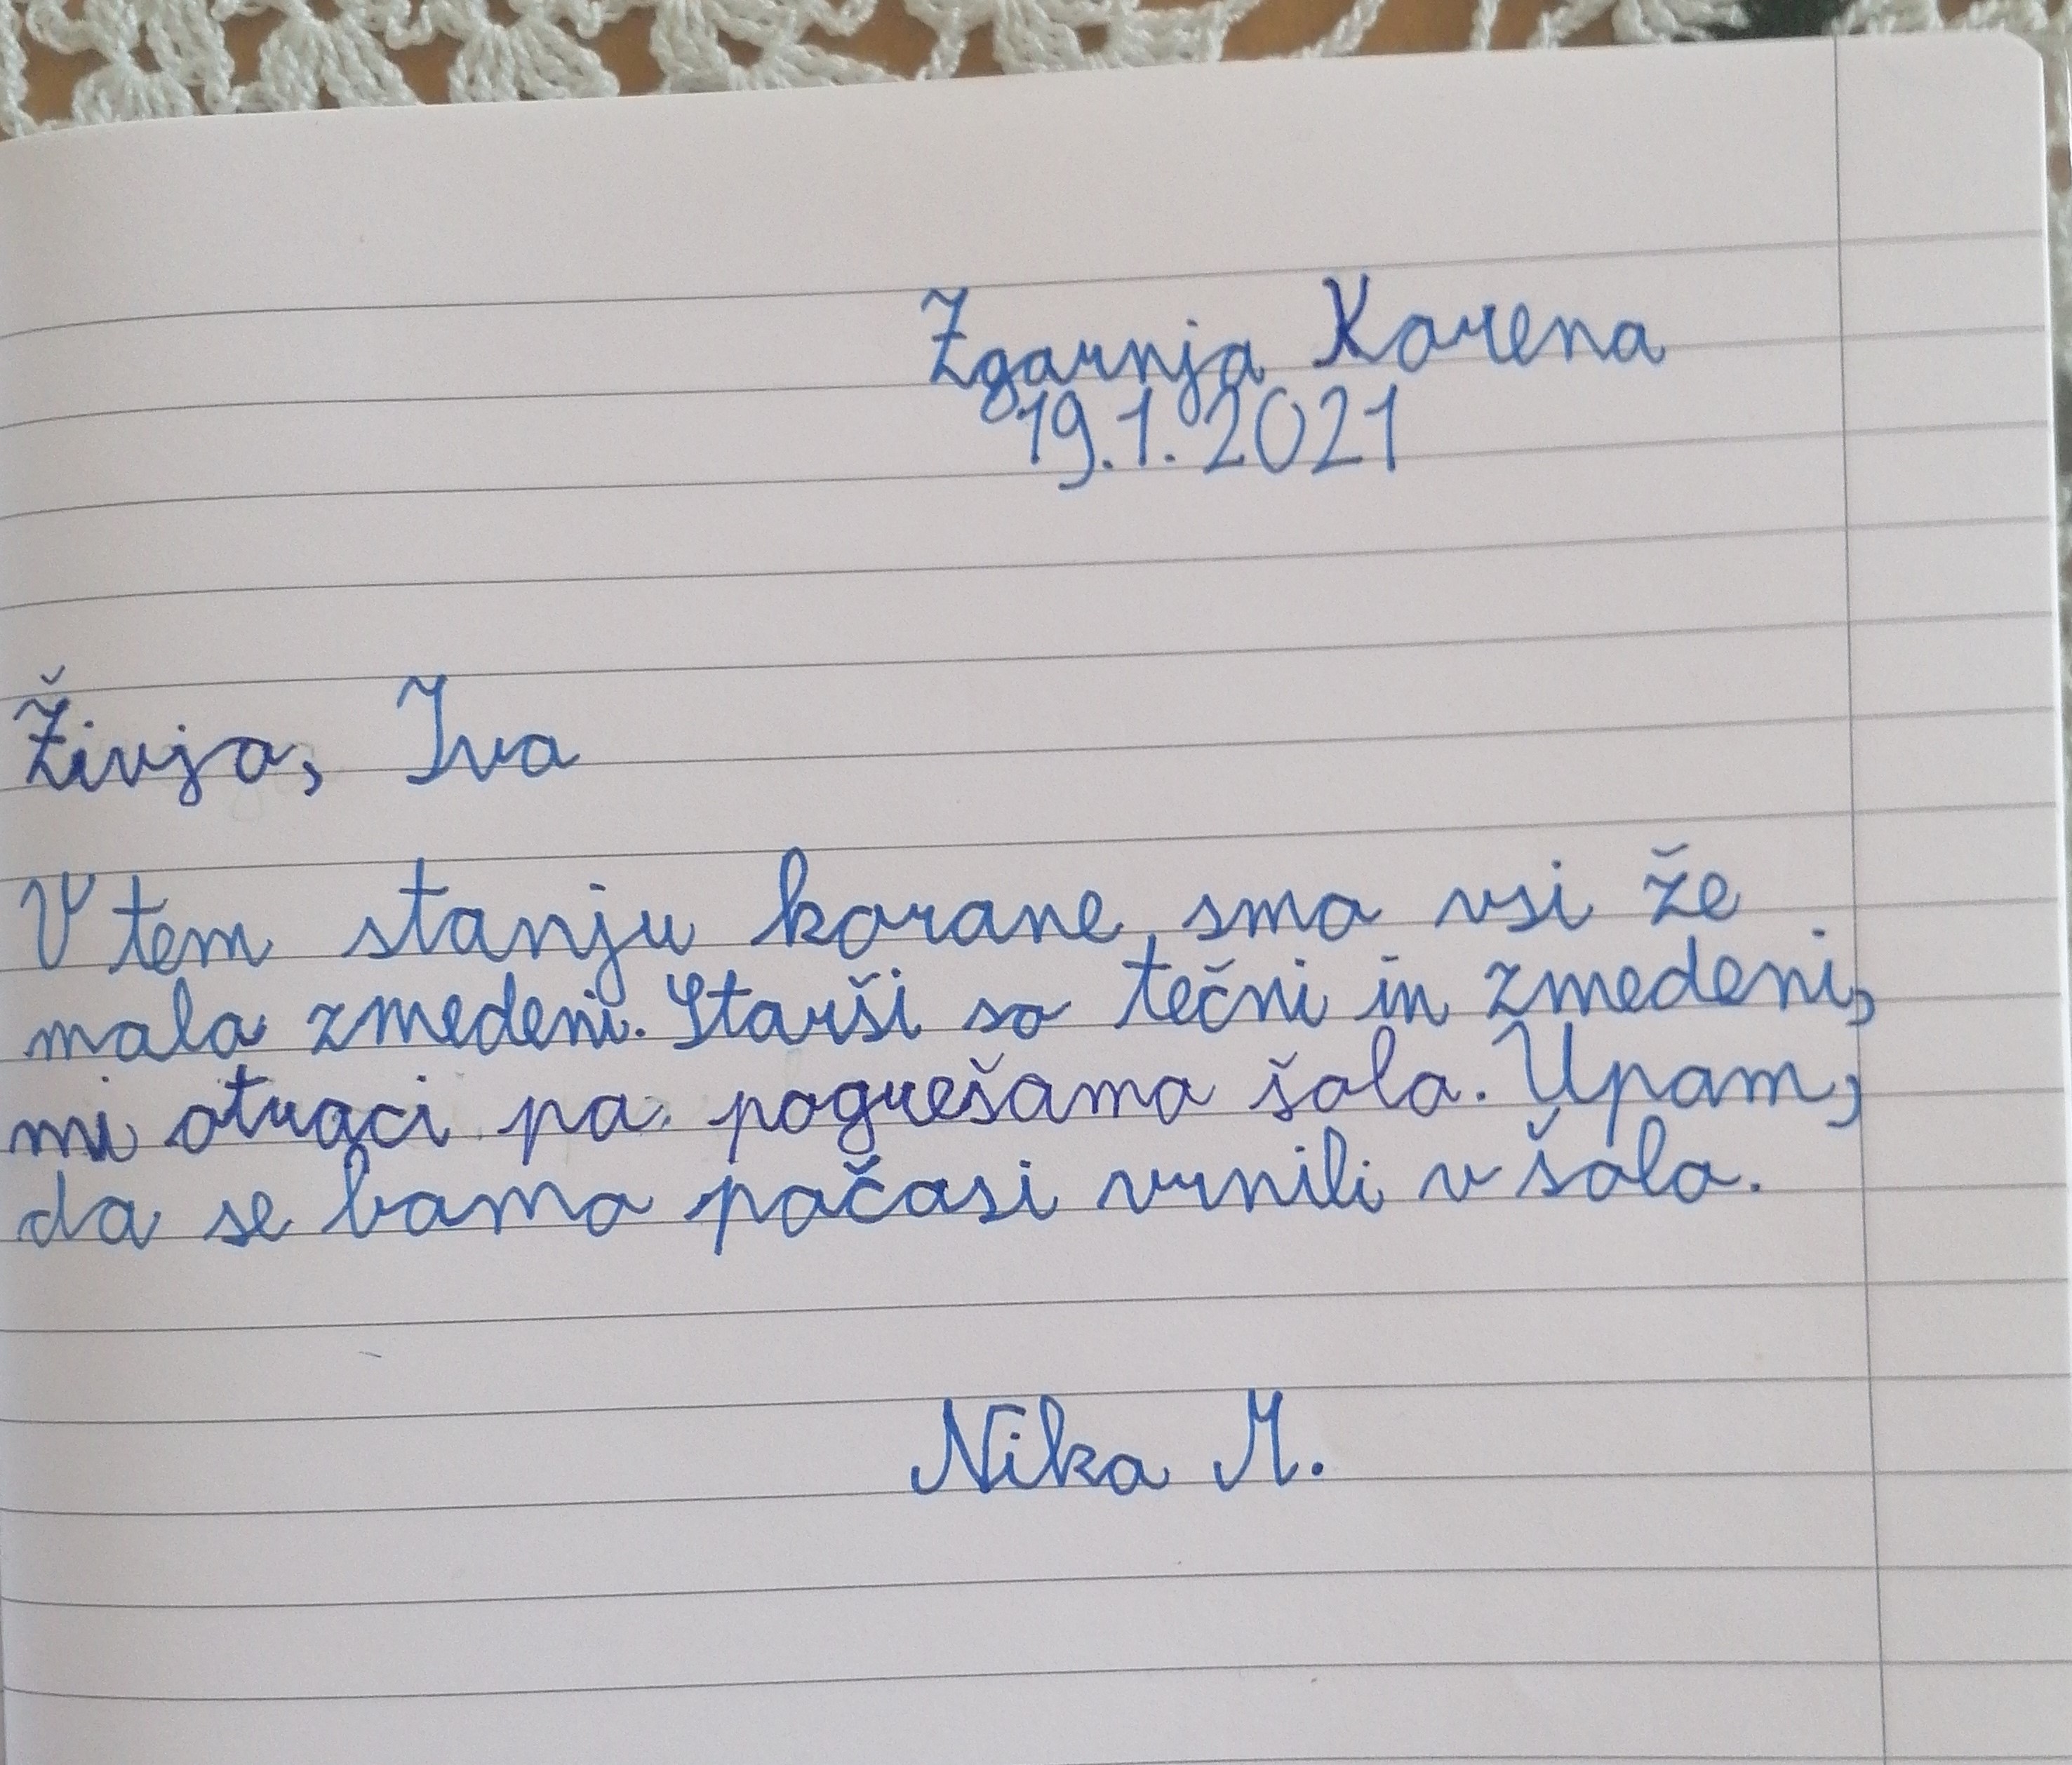 Zgornja Korena
19.1.2021
Živjo, Iva
V tem stanju korone smo vsi že
malo zmedeni. Starši so tečni in zmedeni,
mi otroci pa pogrešamo šolo. Upam,
da se bomo počasi vrnili v šolo.
Nika M.